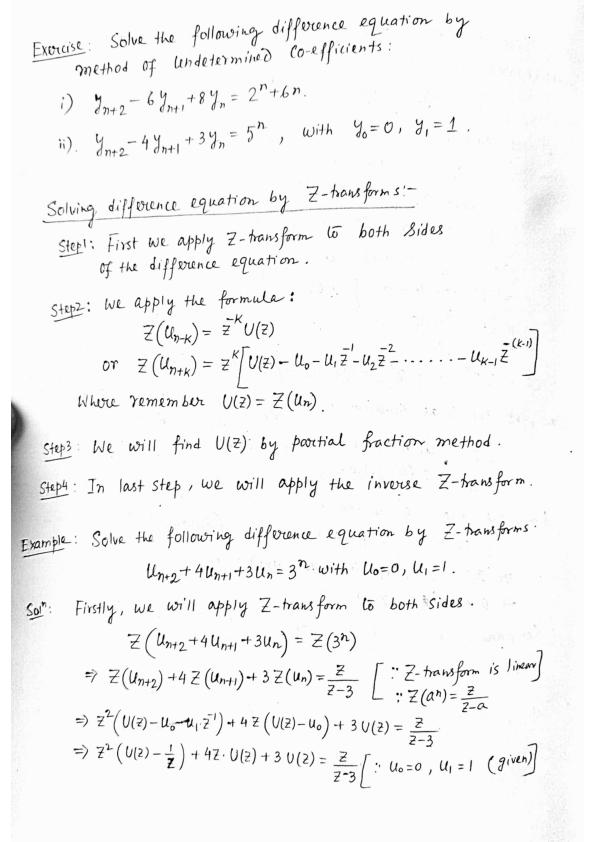 Exercise: Solve the following difference equation by
method of Undetermined Co-efficients:
i) yₙ₊₂ - 6yₙ₊₁ + 8yₙ = 2ⁿ + 6n.
ii). yₙ₊₂ - 4yₙ₊₁ + 3yₙ = 5ⁿ , with y₀ = 0, y₁ = 1.
Solving difference equation by Z-transforms:-
Step1: First we apply Z-transform to both sides
of the difference equation.
Step2: We apply the formula:
Z(Uₙ₋ₖ) = z⁻ᴷ U(z)
or Z(Uₙ₊ₖ) = zᴷ[U(z) - U₀ - U₁z⁻¹ - U₂z⁻² ....... - Uₖ₋₁ z⁻⁽ᵏ⁻¹⁾]
Where remember U(z) = Z(Uₙ).
Step3: We will find U(z) by partial fraction method.
Step4: In last step, we will apply the inverse Z-transform.
Example: Solve the following difference equation by Z-transforms.
Uₙ₊₂ + 4Uₙ₊₁ + 3Uₙ = 3ⁿ with U₀=0, U₁=1.
Solⁿ: Firstly, we will apply Z-transform to both sides.
Z(Uₙ₊₂ + 4Uₙ₊₁ + 3Uₙ) = Z(3ⁿ)
⇒ Z(Uₙ₊₂) + 4Z(Uₙ₊₁) + 3Z(Uₙ) = z/(z-3) [∵ Z-transform is linear ∵ Z(aⁿ) = z/(z-a)]
⇒ z²(U(z) - U₀ - U₁z⁻¹) + 4z(U(z) - U₀) + 3U(z) = z/(z-3)
⇒ z²(U(z) - 1/z) + 4z.U(z) + 3U(z) = z/(z-3) [∵ U₀=0, U₁=1 (given)]